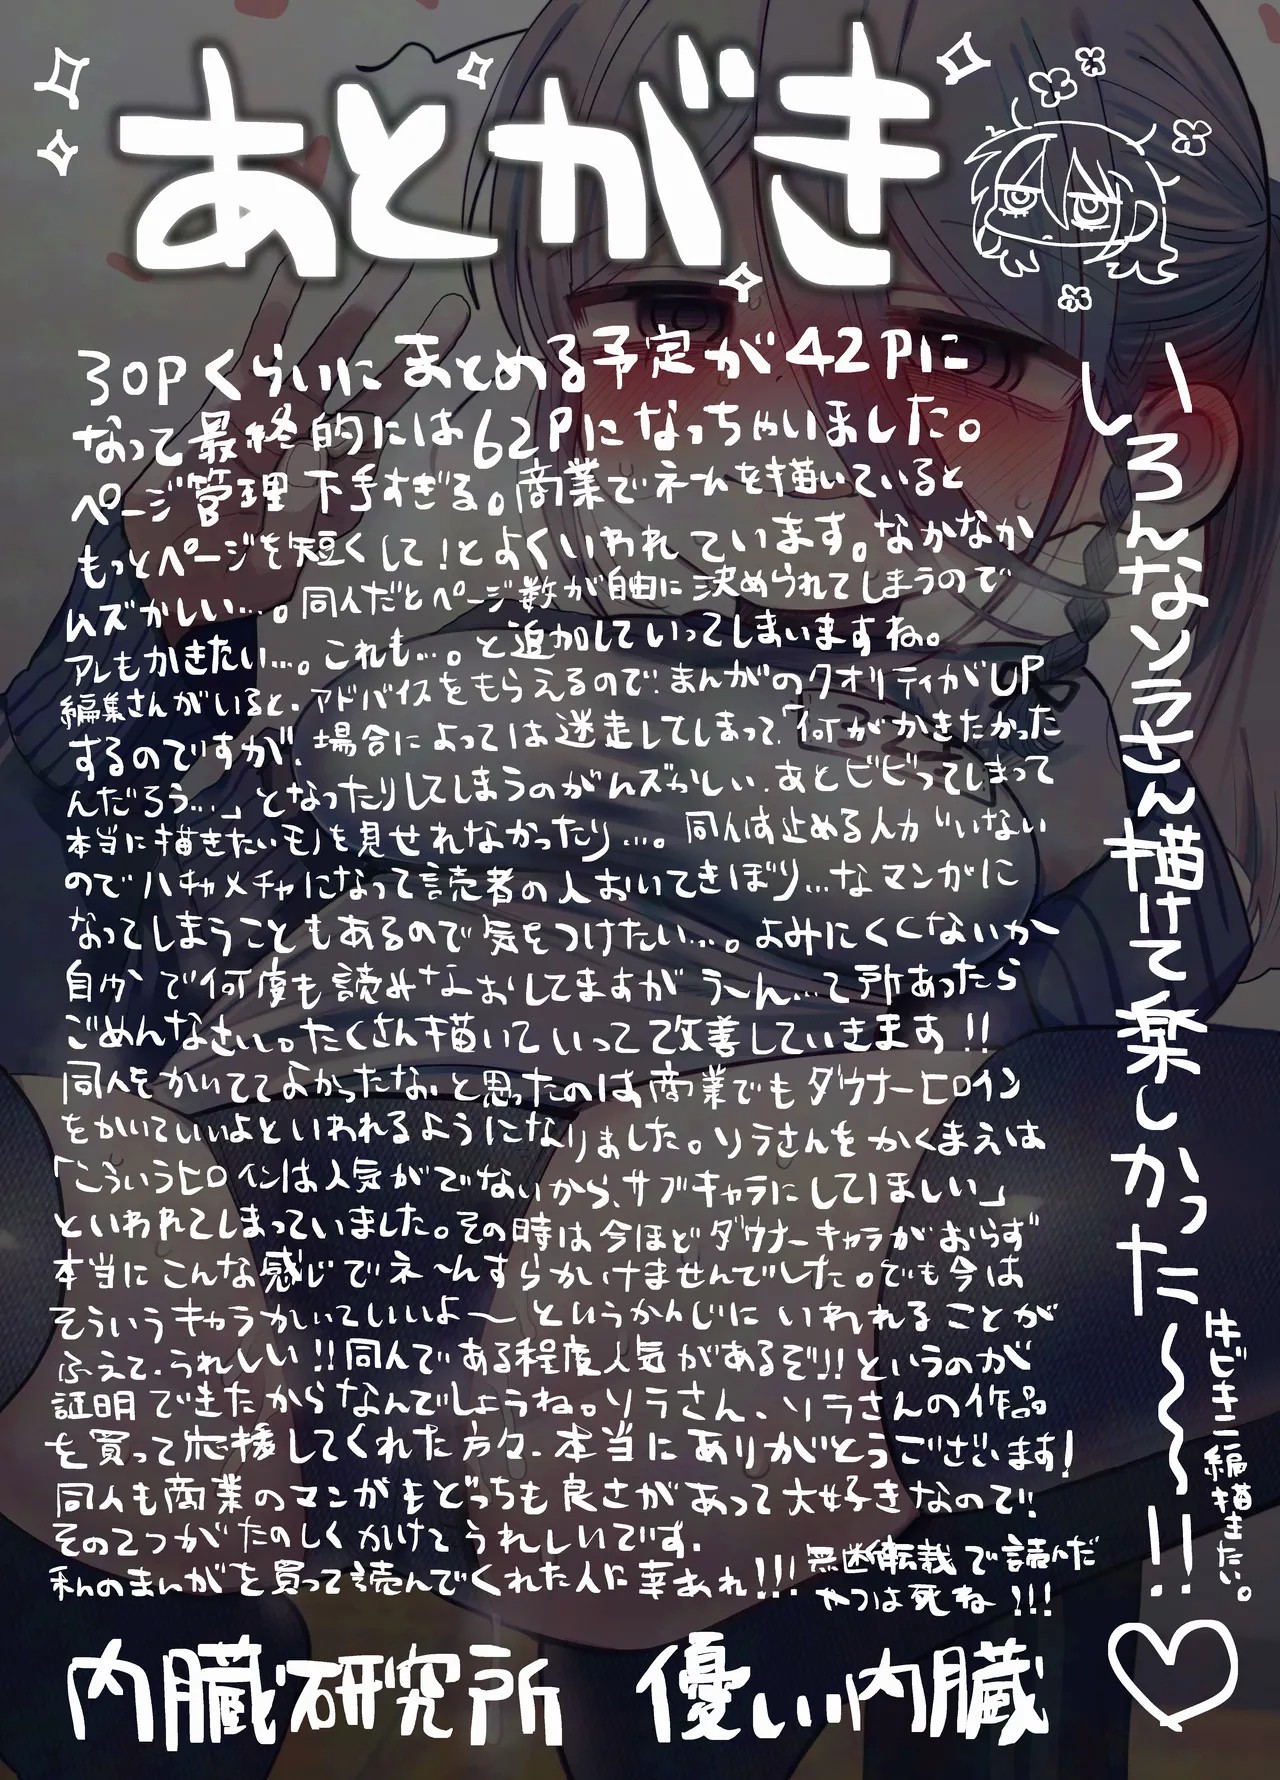 あとがき
30Pくらいにまとめる予定が42Pに
なって最終的には62Pになっちゃいました。
ページ管理下手すぎる。商業でネームを描いていると
もっとページを短くして!とよくいわれています。なかなか
ムズかしい…。同人だとページ数が自由に決められてしまうので
アレもかきたい…。これも…。と追加していってしまいますね。
編集さんがいると、アドバイスをもらえるので、まんがのクオリティがUP
するのですが、場合によっては迷走してしまって、「何がかきたかった
んだろう…」となったりしてしまうのがムズかしい、あとビビってしまって
本当に描きたいモノを見せれなかったり…。同人は止める人がいない
のでハチャメチャになって読者の人おいてきぼり…なマンガに
なってしまうこともあるので気をつけたい…。よみにくくないか
自分で何度も読みなおしてますがう〜ん…て所あったら
ごめんなさい。たくさん描いていって改善していきます!!
同人をかいててよかったな、と思ったのは商業でもダウナーヒロイン
をかいていいよといわれるようになりました。ソラさんをかくまえは
「こういうヒロインは人気がでないから、サブキャラにしてほしい」
といわれてしまっていました。その時は今ほどダウナーキャラがおらず
本当にこんな感じでネームすらかけませんでした。でも今は
そういうキャラかいていいよ〜というかんじにいわれることが
ふえて、うれしい!!同人である程度人気があるぞ!!というのが
証明できたからなんでしょうね。ソラさん、ソラさんの作品
を買って応援してくれた方々、本当にありがとうございます!
同人も商業のマンガもどっちも良さがあって大好きなので!!
その2つがたのしくかけてうれしいです。
私のまんがを買って読んでくれた人に幸あれ!!!
無断転載で読んだ
やつは死ね!!!
内臓研究所 優しい内臓
いろんなソラさん描けて楽しかった〜〜!!♡
牛ビキニ編描きたい。